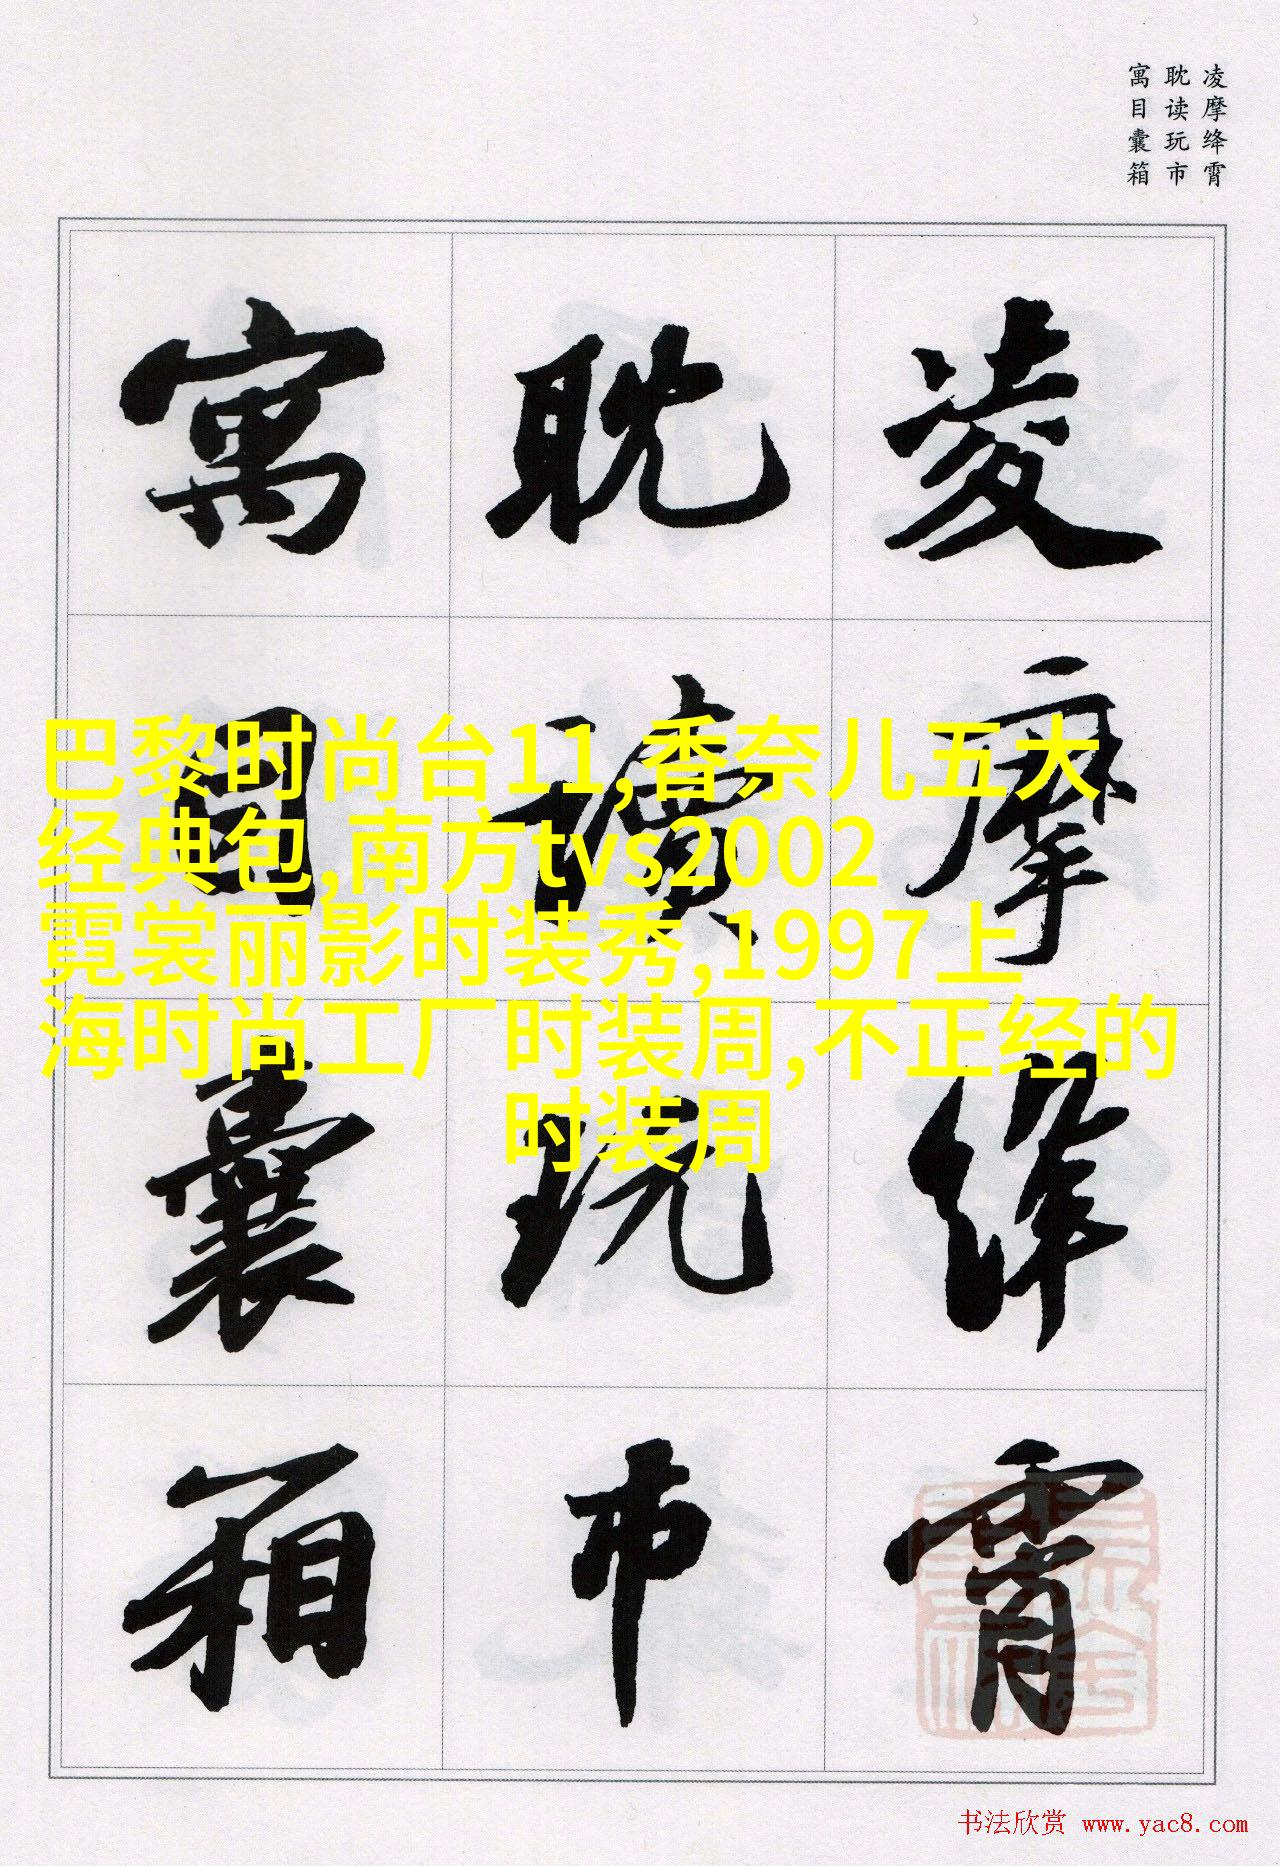 凌摩绛霄
耽读玩市
寓目囊箱
凌摩绛霄
耽讀玩市
寓目囊箱
巴黎时尚台11,香奈儿五大
经典包,南方tvs2002
霓裳丽影时装秀,1997上
海时尚工厂时装周,不正经的
时装周
书法欣赏 www.yac8.com